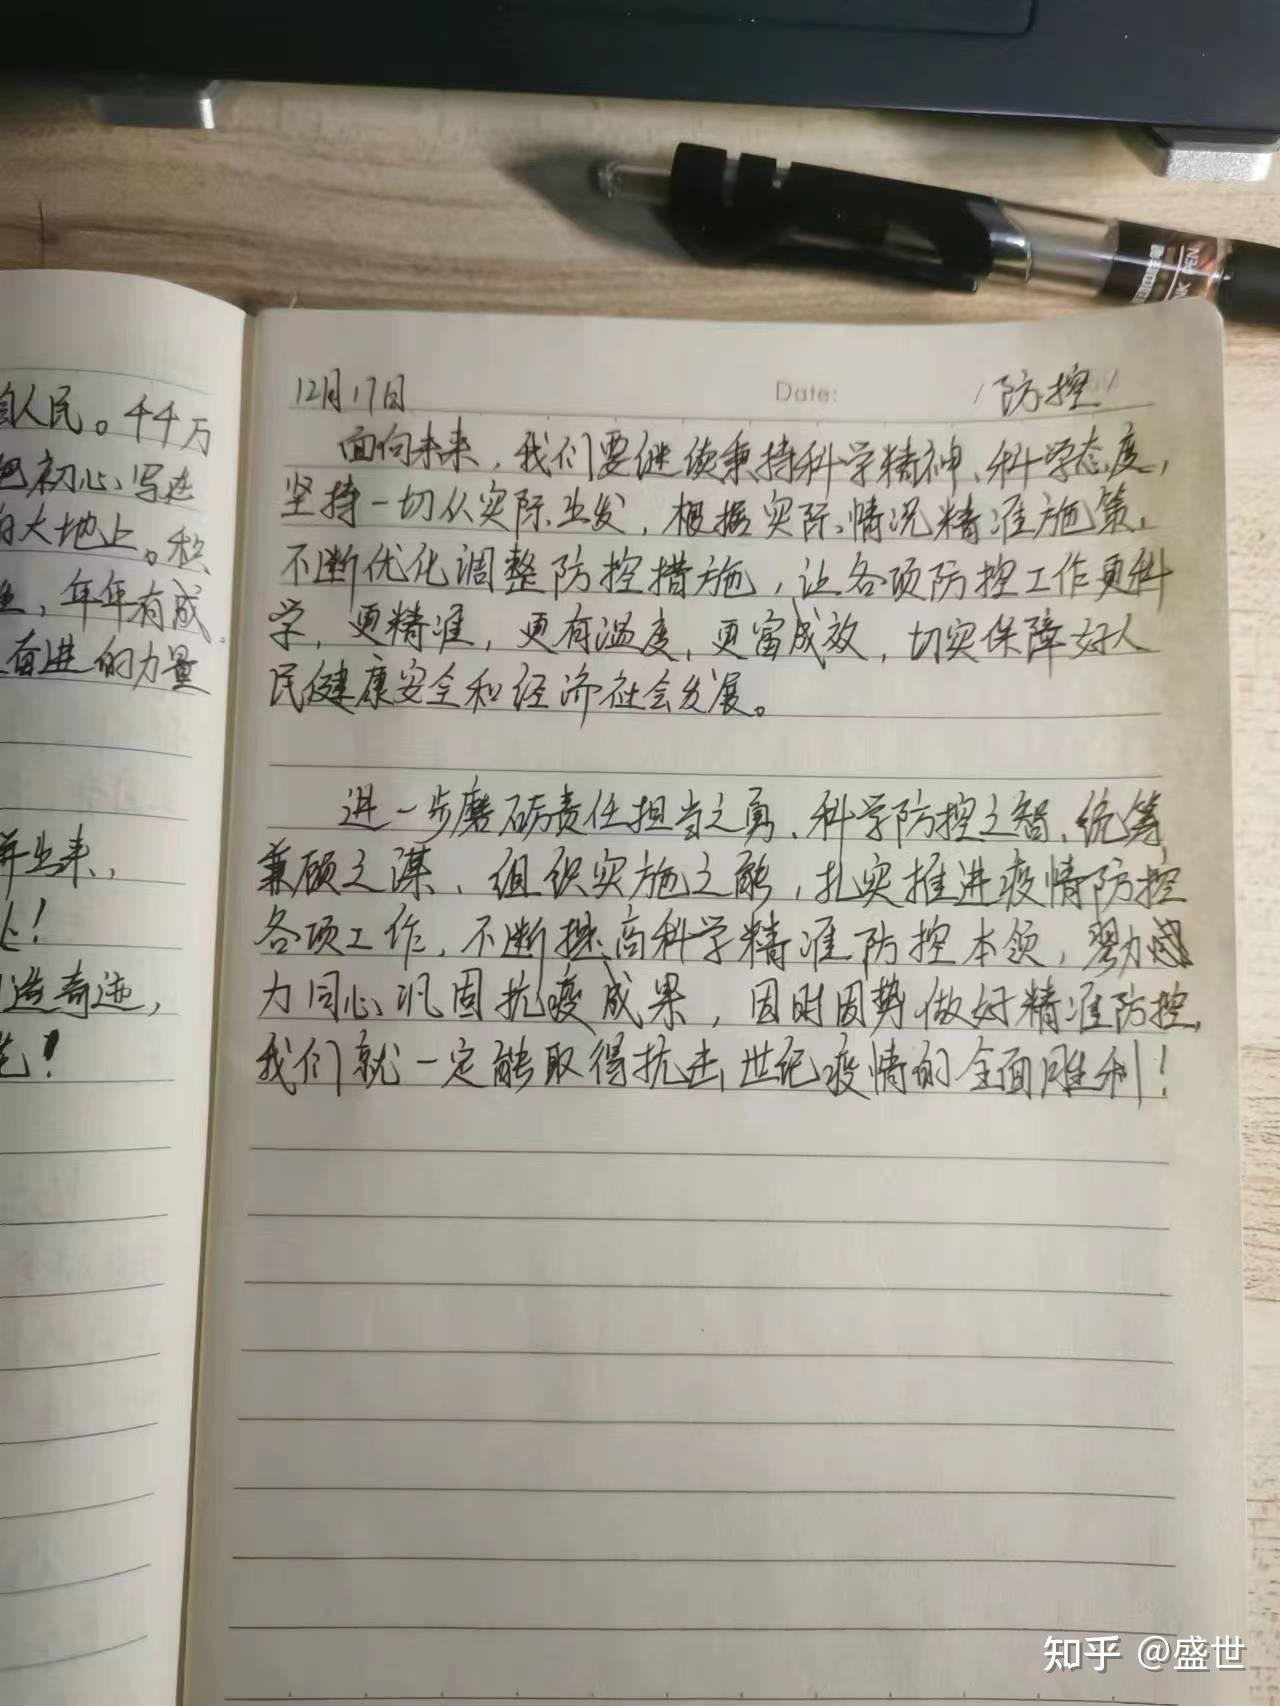 自人民。千千万
把初心写进
的大地上。积
年年有成
奋进的力量
来，
人！
造奇迹，
！
12月17日 Date: 防控
面向未来，我们要继续秉持科学精神、科学态度，
坚持一切从实际出发，根据实际情况精准施策，
不断优化调整防控措施，让各项防控工作更科
学，更精准，更有温度，更富成效，切实保障好人
民健康安全和经济社会发展。
进一步磨砺责任担当之勇、科学防控之智、统筹
兼顾之谋、组织实施之能，扎实推进疫情防控
各项工作，不断提高科学精准防控本领，勠力
力同心巩固抗疫成果，因时因势做好精准防控，
我们就一定能取得抗击世纪疫情的全面胜利！
PEN
知乎 @盛世